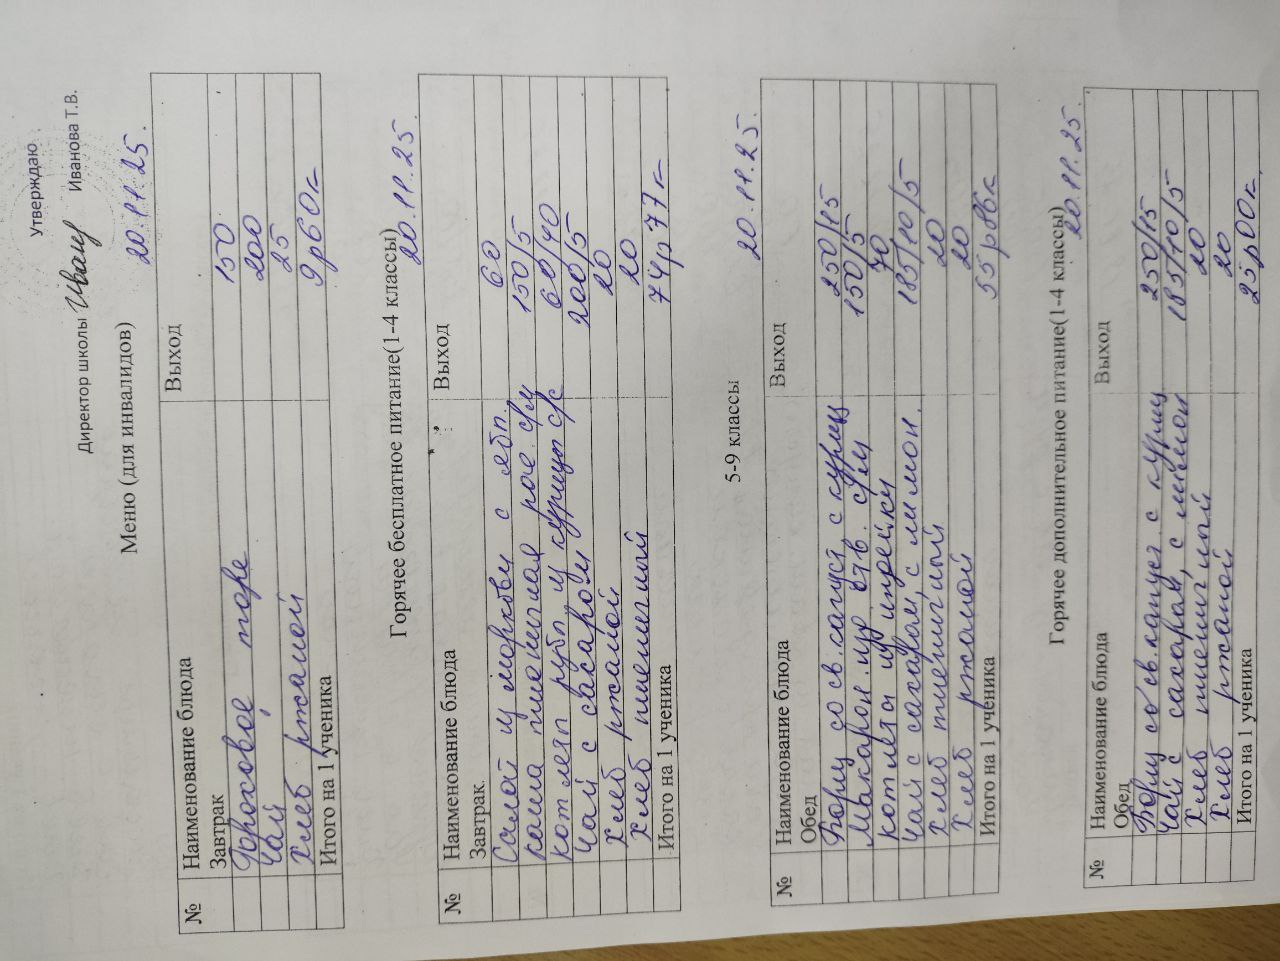 Утверждаю
Директор школы Иванова Т.В.
Меню (для инвалидов) 20.11.25.
№ Наименование блюда Выход
Завтрак
Гороховое пюре 150
Чай 200
Хлеб ржаной 25
Итого на 1 ученика 9р60к
Горячее бесплатное питание(1-4 классы) 20.11.25.
№ Наименование блюда Выход
Завтрак
Салат из моркови с ябл. 60
каша пшеничная рас. с/м 150/5
котлет рубл из курицы с/с 60/40
Чай с сахаром 200/5
Хлеб ржаной 20
Хлеб пшеничный 20
Итого на 1 ученика 74р77к
5-9 классы 20.11.25.
№ Наименование блюда Выход
Обед
Борщ со св. капуст. с куриц 250/15
Макарон. изд отв. с/м 150/5
котлета из индейки 70
Чай с сахаром, с лимон. 185/10/5
Хлеб пшеничный 20
Хлеб ржаной 20
Итого на 1 ученика 55р06к
Горячее дополнительное питание(1-4 классы) 20.11.25
№ Наименование блюда Выход
Обед
Борщ со св. капуст. с куриц 250/15
Чай с сахаром, с лимон 185/10/5
Хлеб пшеничный 20
Хлеб ржаной 20
Итого на 1 ученика 25р00к.